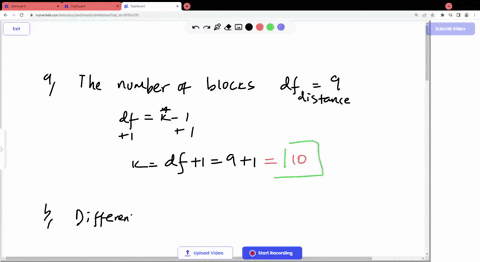 Exit
a, The number of blocks df = 9
distance
df = k - 1
+1 +1
k = df + 1 = 9 + 1 = 10
b, Differen
Upload Video Start Recording